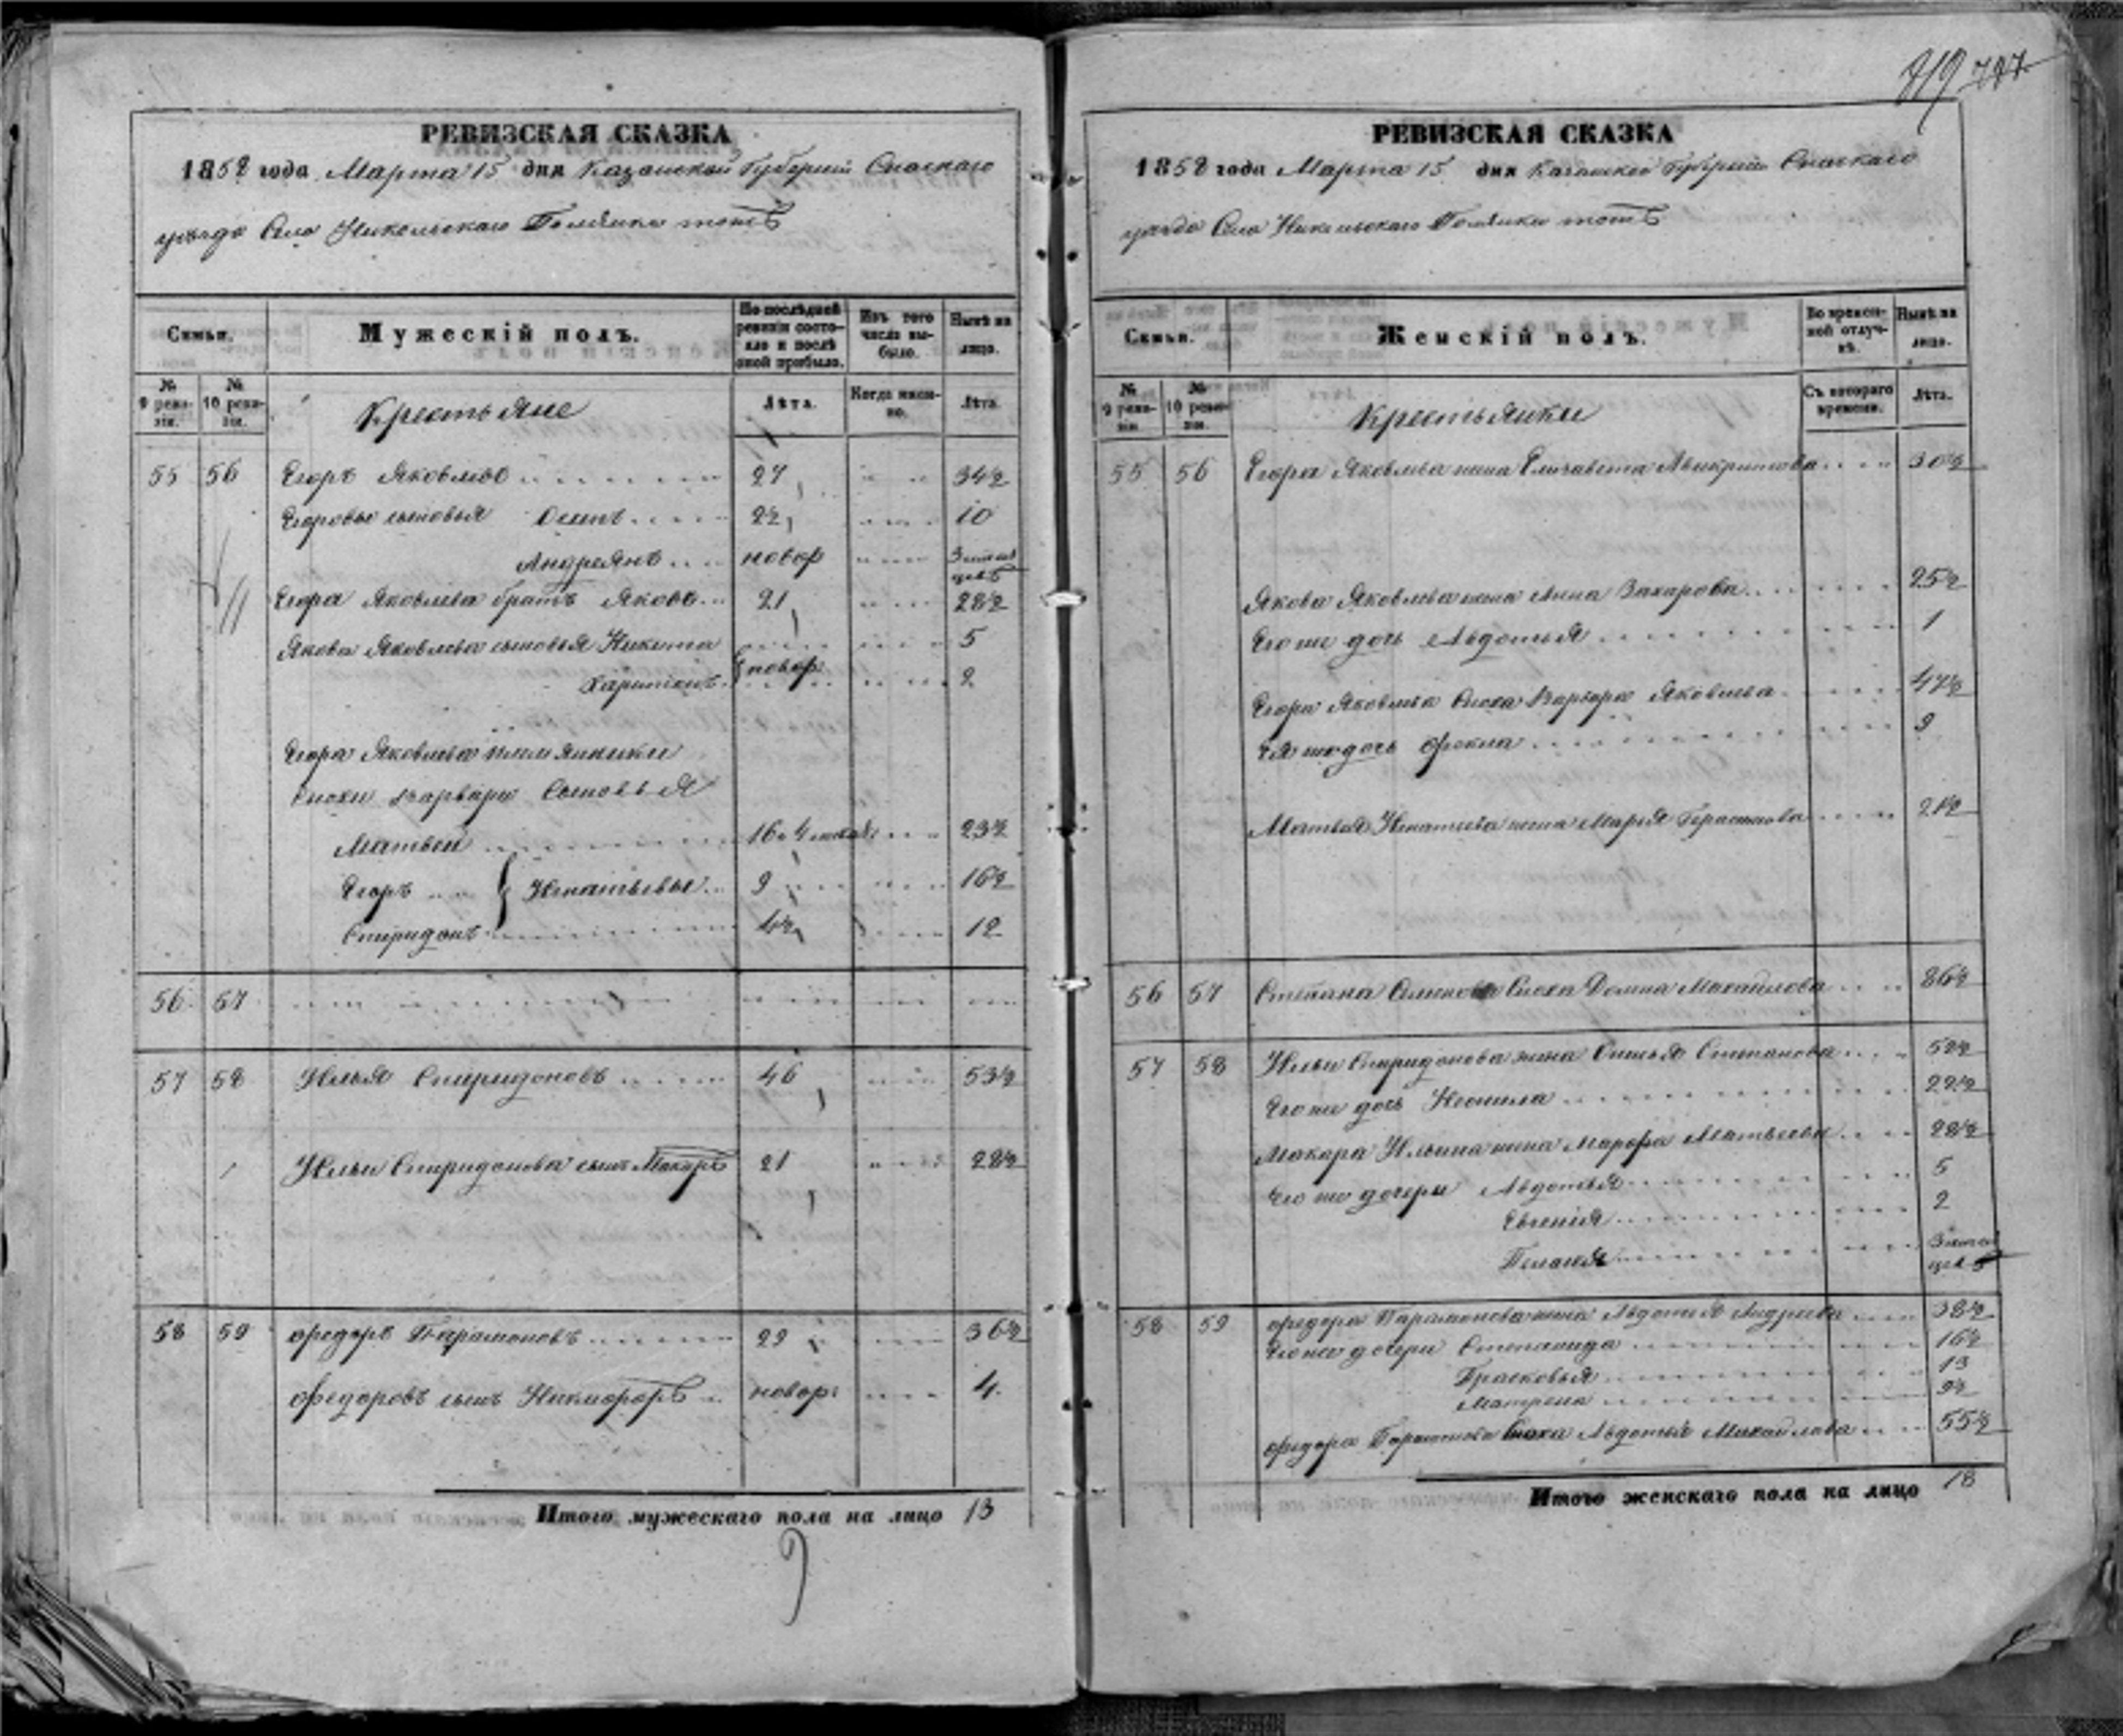 РЕВИЗСКАЯ СКАЗКА
1858 года Марта 15 дня Казанской Губернии Спаскаго
уезда Села Никольскаго тожъ
Семьи.
Мужескій полъ.
По послѣдней ревизіи состояло и послѣ оной прибыло.
Изъ того числа выбыло.
Нынѣ на лицо.
№ 9 ревизіи.
№ 10 ревизіи.
Крестьяне
Лѣта.
Когда именно.
Лѣта.
55 56 Егоръ Яковлевъ 27 34½
Егоровы сыновья Осипъ 10
Андреянъ новор 3 месяцевъ
Егора Яковлева братъ Яковъ 21 28½
Якова Яковлева сыновья Никита 5
Харитонъ новор. 2
Егора Яковлева племянники
снохи Варвары Сыновья
Матвей 16 23½
Егоръ Игнатьевы 9 16½
Спиридонъ 12
56 57
57 58 Илья Спиридоновъ 46 53½
Ильи Спиридонова сынъ Макаръ 21 28½
58 59 Федоръ Парамоновъ 29 36½
Федоровъ сынъ Никифоръ новор. 4
Итого мужескаго пола на лицо 13
719 727
РЕВИЗСКАЯ СКАЗКА
1858 года Марта 15 дня Казанской Губернии Спаскаго
уезда Села Никольскаго тожъ
Семьи.
Женскій полъ.
Во временной отлучкѣ.
Нынѣ на лицо.
№ 9 ревизіи.
№ 10 ревизіи.
Крестьянки
Съ котораго времени.
Лѣта.
55 56 Егора Яковлева жена Елизавета 30½
Якова Яковлева жена Анна Захарова 25½
Его же дочь Авдотья 1
Егора Яковлева Сноха Варвара Яковлева 47½
Ея же дочь Фекла 9
Матвея Игнатьева жена Марья Герасимова 21½
56 57 Степана Сноха Домна Михайлова 86½
57 58 Ильи Спиридонова жена Степанова 52½
Его же дочь Неонила 22½
Макара Ильина жена Марфа Матвеева 28½
Его же дочери Авдотья 5
Евгения 2
Пелагея 3 месяцевъ
58 59 Федора Парамонова жена Авдотья Андреева 38½
Его же дочери Степанида 16½
Прасковья 13
Матрена 9½
Федора Парамонова Сноха Авдотья Михайлова 55½
Итого женскаго пола на лицо 18